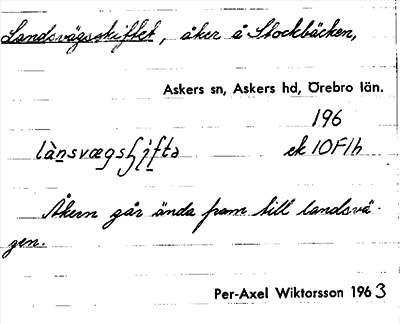 Landsvägsskiftet, åker å Stockbäcken,
Askers sn, Askers hd, Örebro län.
196
lànsvægsʃifta ek 10F1h
Åkern går ända fram till landsvä-
gen.
Per-Axel Wiktorsson 1963